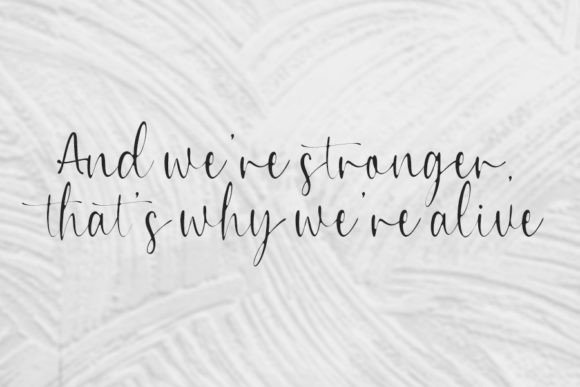 And we're stronger,
that's why we're alive